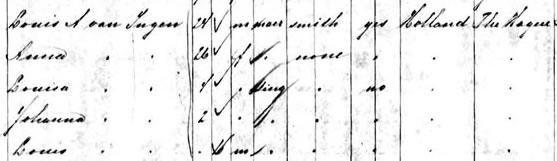 Louis A van Ingen 28 m marr smith yes Holland The Hague
Anna . . 26 f . none . . .
Louisa . . . sing . no . .
Johanna . . 2 . . . . . .
Louis . . . 6 m . . . . .